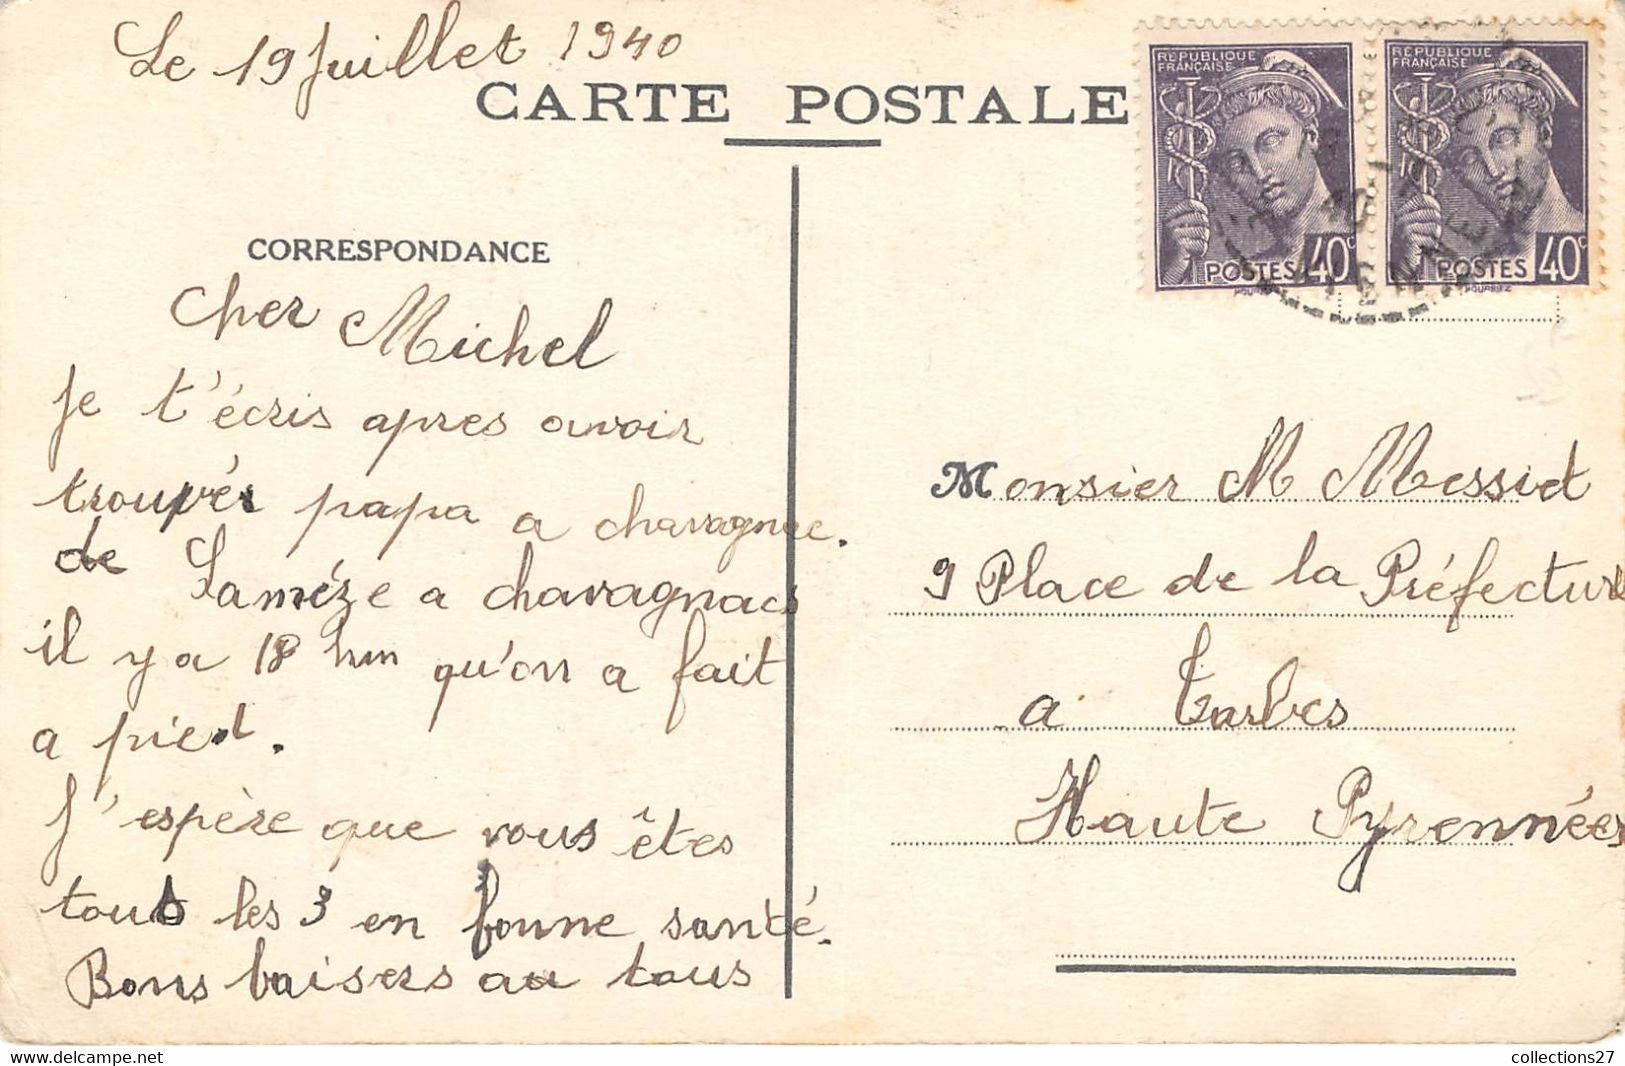 Le 19 Juillet 1940
CARTE POSTALE
RÉPUBLIQUE FRANÇAISE
POSTES 40c
RÉPUBLIQUE FRANÇAISE
POSTES 40c
CORRESPONDANCE
Cher Michel
Je t'écris apres avoir
trouvér papa a chavagnac.
de Laméze a chavagnacs
il y a 18 hm qu'on a fait
a pied.
J'espère que vous êtes
tout les 3 en bonne santé.
Bons baisers au tous
Monsier M Messiet
9 Place de la Préfecture
a Tarbes
Haute Pyrennées
collections27